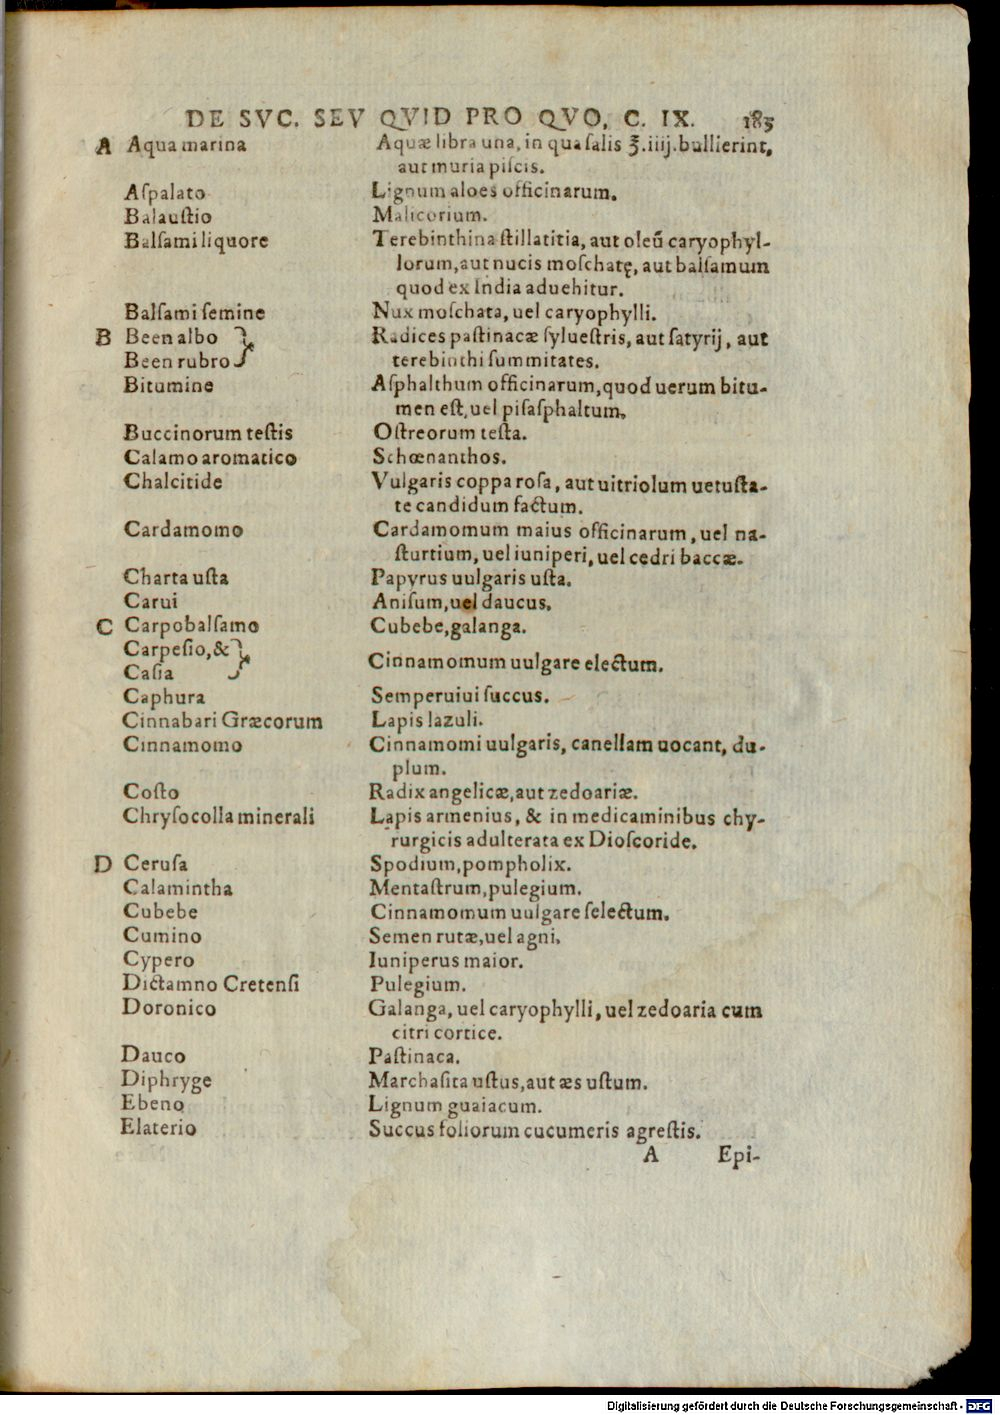 DE SVC. SEV QVID PRO QVO, C. IX. 185
A Aqua marina Aquæ libra una, in qua salis ℥.iiij. bullierint,
aut muria piscis.
Aſpalato Lignum aloes officinarum.
Balauſtio Malicorium.
Balſami liquore Terebinthina ſtillatitia, aut oleũ caryophyl-
lorum, aut nucis moſchatę, aut balſamum
quod ex India aduehitur.
Balſami ſemine Nux moſchata, uel caryophylli.
B Been albo Radices paſtinacæ ſylueſtris, aut ſatyrij, aut
Been rubro terebinthi ſummitates.
Bitumine Aſphalthum officinarum, quod uerum bitu-
men eſt, uel piſaſphaltum,
Buccinorum teſtis Oſtreorum teſta.
Calamo aromatico Schœnanthos.
Chalcitide Vulgaris coppa roſa, aut uitriolum uetuſta-
te candidum factum.
Cardamomo Cardamomum maius officinarum, uel na-
ſturtium, uel iuniperi, uel cedri baccæ.
Charta uſta Papyrus uulgaris uſta.
Carui Aniſum, uel daucus.
C Carpobalſamo Cubebe, galanga.
Carpeſio, &
Caſia Cinnamomum uulgare electum.
Caphura Semperuiui ſuccus.
Cinnabari Græcorum Lapis lazuli.
Cinnamomo Cinnamomi uulgaris, canellam uocant, du-
plum.
Coſto Radix angelicæ, aut zedoariæ.
Chryſocolla minerali Lapis armenius, & in medicaminibus chy-
rurgicis adulterata ex Dioſcoride.
D Ceruſa Spodium, pompholix.
Calamintha Mentaſtrum, pulegium.
Cubebe Cinnamomum uulgare ſelectum.
Cumino Semen rutæ, uel agni,
Cypero Iuniperus maior.
Dictamno Cretenſi Pulegium.
Doronico Galanga, uel caryophylli, uel zedoaria cum
citri cortice.
Dauco Paſtinaca.
Diphryge Marchaſita uſtus, aut æs uſtum.
Ebeno Lignum guaiacum.
Elaterio Succus foliorum cucumeris agreſtis.
A Epi-
Digitalisierung gefördert durch die Deutsche Forschungsgemeinschaft - DFG